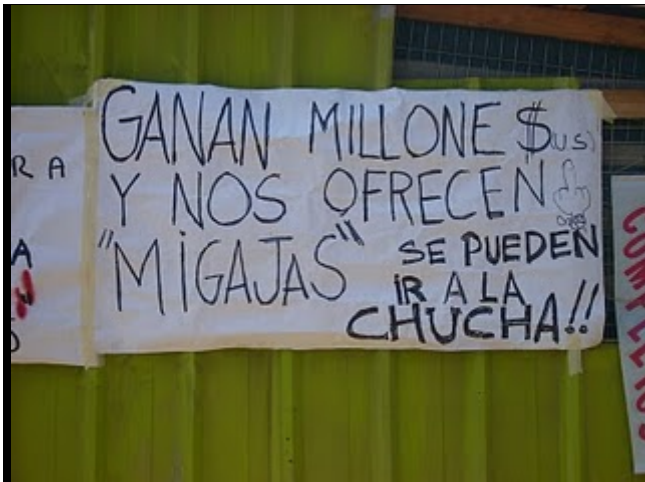 GANAN MILLONE$(US)
Y NOS OFRECEN
"MIGAJAS" SE PUEDEN
IR A LA
CHUCHA!!
RA
A
COMPLETOS